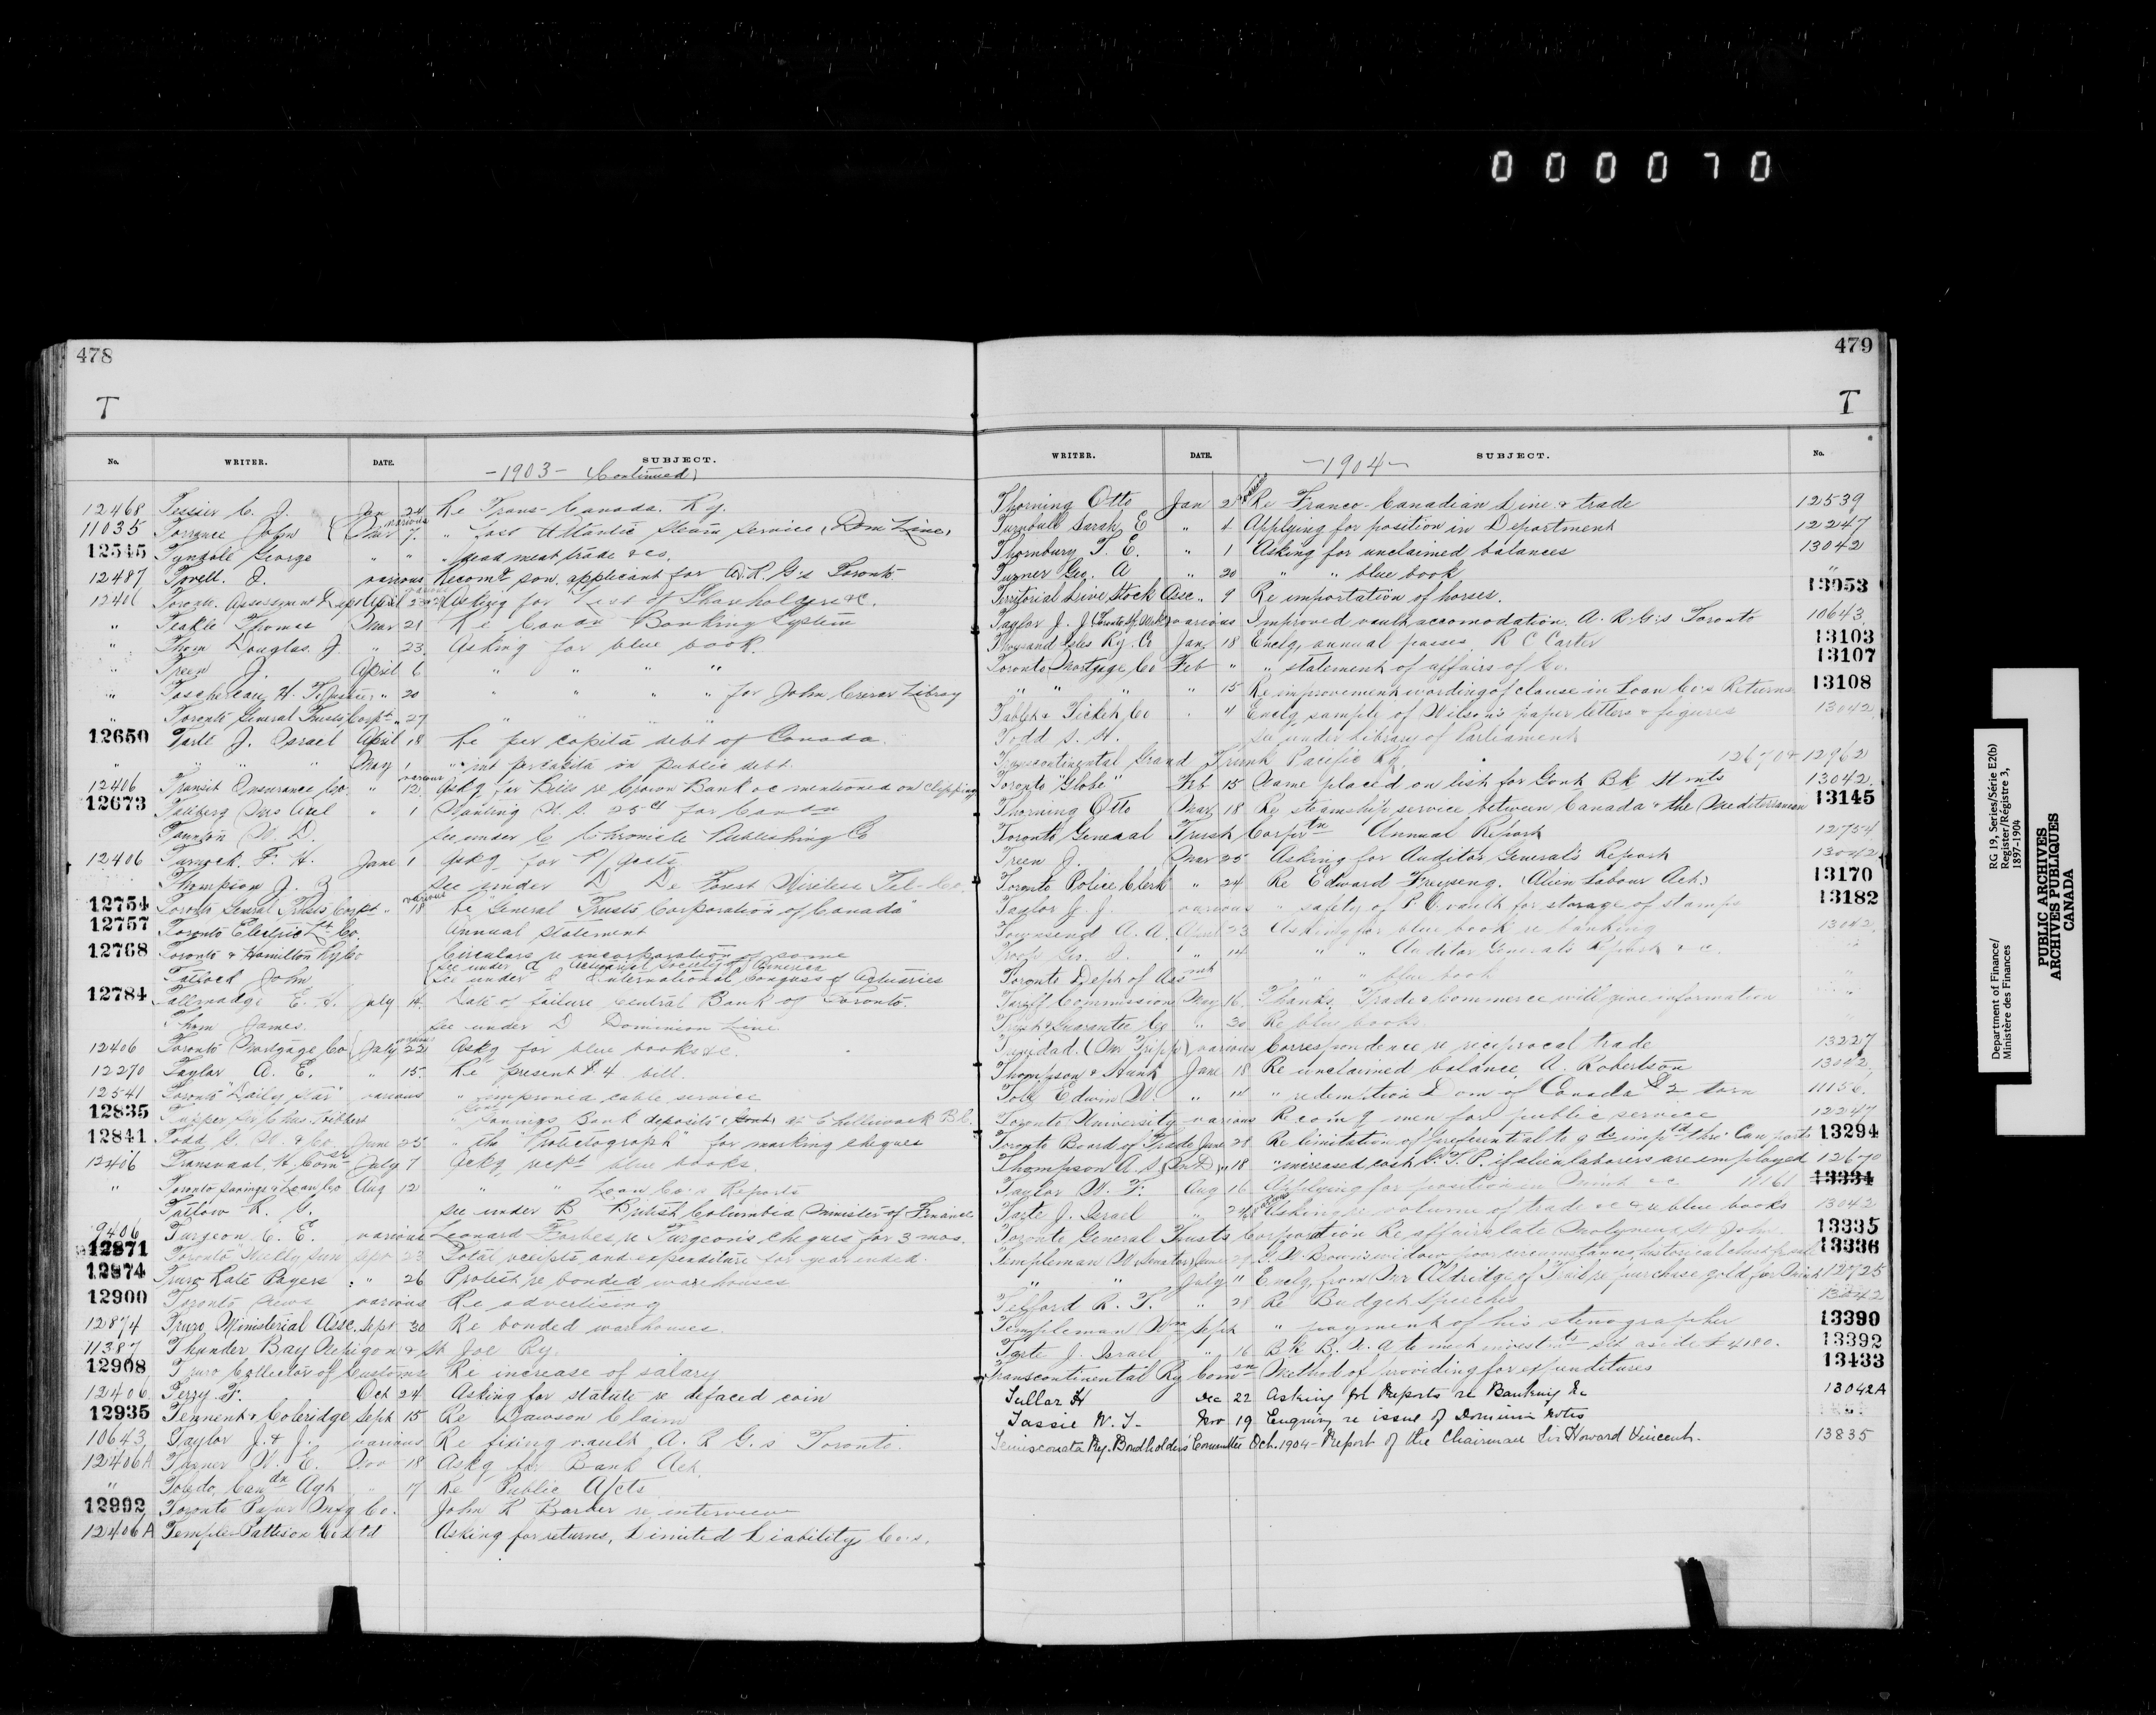 000070
478
T
No. WRITER. DATE. SUBJECT.
-1903- (Continued)
12468 Tessier C. J. Jan 24 Re Trans-Canada Ry.
11035 Torrance John Mar various 7 " fast Atlantic Steam Service (Dom Line)
12545 Tyndale George " " " dead meat trade &c.
12487 Tyrell J. various Recomg son, applicant for A.R.G's Toronto
12406 Toronto Assessment Dept April Asking for List of Shareholders &c.
" Teakle Thomas Mar 21 Re Canan Banking System
" Thom Douglas J. " 23 Asking for blue book
" Treen J. April 6 " " " "
" Taschereau H. T. Justice " 20 " " " " for John Crerar Library
" Toronto General Trusts Corptn " 27 " " "
12650 Tarte J. Israel April 18 Re per capita debt of Canada.
" " " " May 1 " int per capita on public debt.
12406 Transit Insurance Co. " various 12 Askg for Bills re Crown Bank &c mentioned on clipping
12673 Axel " 1 Wanting U. S. 25 cs for Canan
Taunton W. D. see under C Chronicle Publishing Co
12406 Turnock F. H. June 1 Askg for P/Accts
Thompson J. see under D De Forest Wireless Tel-Co.
12754 Toronto General Trusts Corptn " various 18 Re "General Trusts Corporation of Canada"
12757 Toronto Electric Lt Co. Annual Statement
12768 Toronto & Hamilton Ry Co Circulars re incorporation of same
Tatlock John (see under A Actuarial Society of America
(see under C International Congress of Actuaries
12784 Tallmadge E. H. July 14 Date of failure Central Bank of Toronto.
Thom James see under D Dominion Line.
12406 Toronto Mortgage Co July various 22 Askg for blue books &c.
12270 Taylor A. E. " 15 Re present $4 bill.
12541 Toronto "Daily Star" various " improved cable service
12835 Tupper Sir Chas. Hibbert " Savings Bank deposits (Govt) at Chilliwack B.C.
12841 Todd G. W. & Co. June 25 " the "Protectograph" for marking cheques
12406 Transvaal, H. Comr July 7 Ackg recpt blue books.
" Toronto Savings & Loan Co Aug 12 " " Loan Co's Reports
Tatlow R. G. see under B British Columbia Minister of Finance
9406 Turgeon C. E. various Leonard Forbes, re Turgeon's cheques for 3 mos.
12871 Toronto Weekly Sun Sep 23 Total receipts and expenditure for year ended
12874 Truro Rate Payers " 26 Protest re bonded warehouses
12900 Toronto News various Re advertising
12874 Truro Ministerial Assc. Sept 30 Re bonded warehouses.
11387 Thunder Bay Nepigon & St Joe Ry.
12908 Truro Collector of Customs Re increase of salary
12406 Terry F. Oct 24 Asking for statute re defaced coin
12935 Tennent & Coleridge Sept 15 Re Dawson Claim
10643 Taylor J. & J. various Re fixing vault A. R G.'s Toronto.
12406A Turner W. E. Nov 18 Askg for Bank Act.
" Toledo, Candn Agt " 17 Re Public A/cts
12992 Toronto Paper Mfg Co. John R Barber re interview
12406A Temple Pattison Co Ltd Asking for returns, Limited Liability Co's.
479
T
WRITER. DATE. SUBJECT. No.
-1904-
Thorning Otto Jan 2 Re Franco-Canadian Line & trade 12539
Turnbull Sarah E " 4 Applying for position in Department 12247
Thornbury T. E. " 1 Asking for unclaimed balances 13042
Turner Geo. A " 20 " " blue book "
Territorial Live Stock Assc. " 9 Re importation of horses. 13053
Taylor J. J. (Toronto Safe Works) various Improved vault accomodation A. R. G's Toronto 10643
Thousand Isles Ry. Co Jan 18 Enclg. annual passes R C Carter 13103
Toronto Mortgage Co Feb " " statement of affairs of Co. 13107
" " " " 15 Re improvement wording of clause in Loan Co's Returns 13108
Tablet & Ticket Co " 4 Enclg sample of Wilson's paper letters & figures 13042
Todd A. H. see under Library of Parliament
Transcontinental Grand Trunk Pacific Ry. 12670 & 12962
Toronto "Globe" Feb 15 Name placed on list for Govt Bk St mts 13042
Thorning Otto Mar 18 Re steamship service between Canada & the Mediterranean 13145
Toronto General Trust Corportn Annual Report 12754
Treen J. Mar 25 Asking for Auditor General's Report 13042
Toronto Police Clerk " 24 Re Edward Freyseng. (Alien Labour Act) 13170
Taylor J. J. various " safety of P. O. vault for storage of stamps 13182
Townsend A. A. April 23 Asking for blue book re banking 13042
Troop Geo. " 14 " " Auditor General's Report &c.
Toronto Dept of Assmt " " blue book "
Tariff Commission May 16 Thanks. Trade & Commerce will give information
Trust & Guarantee Co " 30 Re blue books
Trinidad. (Mr Tripp) various Correspondence re reciprocal trade 13227
Thompson & Hunt June 18 Re unclaimed balance, A. Robertson 13042
Tole Edwin W. " 14 " redemption Dom of Canada $2 torn 11156
Toronto University various Recomg men for public service 12247
Toronto Board of Trade June 28 Re limitation of preferential to gds imptd thro' Can ports 13294
Thompson A. " 18 " increased cost G. T. P. if alien laborers are employed 12670
Taylor W. F. Aug 16 Applying for position in Mint &c 11161 13334
Tarte J. Israel " Asking re volume of trade &c & re blue books 13042
Toronto General Trusts Corporation Re affairs late Molyneux St John 13335
Templeman W. (Senator) June 29 G. W. Brown's widow, poor circumstances, historical chest for sale 13336
" " July " Enclg. from Mr Aldridge of Trail re purchase gold for Mint 12725
Telford R. T. " 28 Re Budget Speeches 13042
Templeman Won Sept " payment of his stenographer 13390
Tarte J. Israel " 16 Bk B. N. A to meet investts set aside £4180. 13392
Transcontinental Ry Comsn Method of providing for expenditures 13433
Tullar H Dec 22 Asking for Reports re Banking &c 13042A
Tassie W. T. Nov 19 Enquiry re issue of Dominion Notes
Temisconata Ry. Bondholders' Committee Oct. 1904 - Report of the Chairman Sir Howard Vincent. 13835
Department of Finance/
Ministère des Finances
RG 19, Series/Série E2(b)
Register/Régistre 3,
1897-1904
PUBLIC ARCHIVES
ARCHIVES PUBLIQUES
CANADA